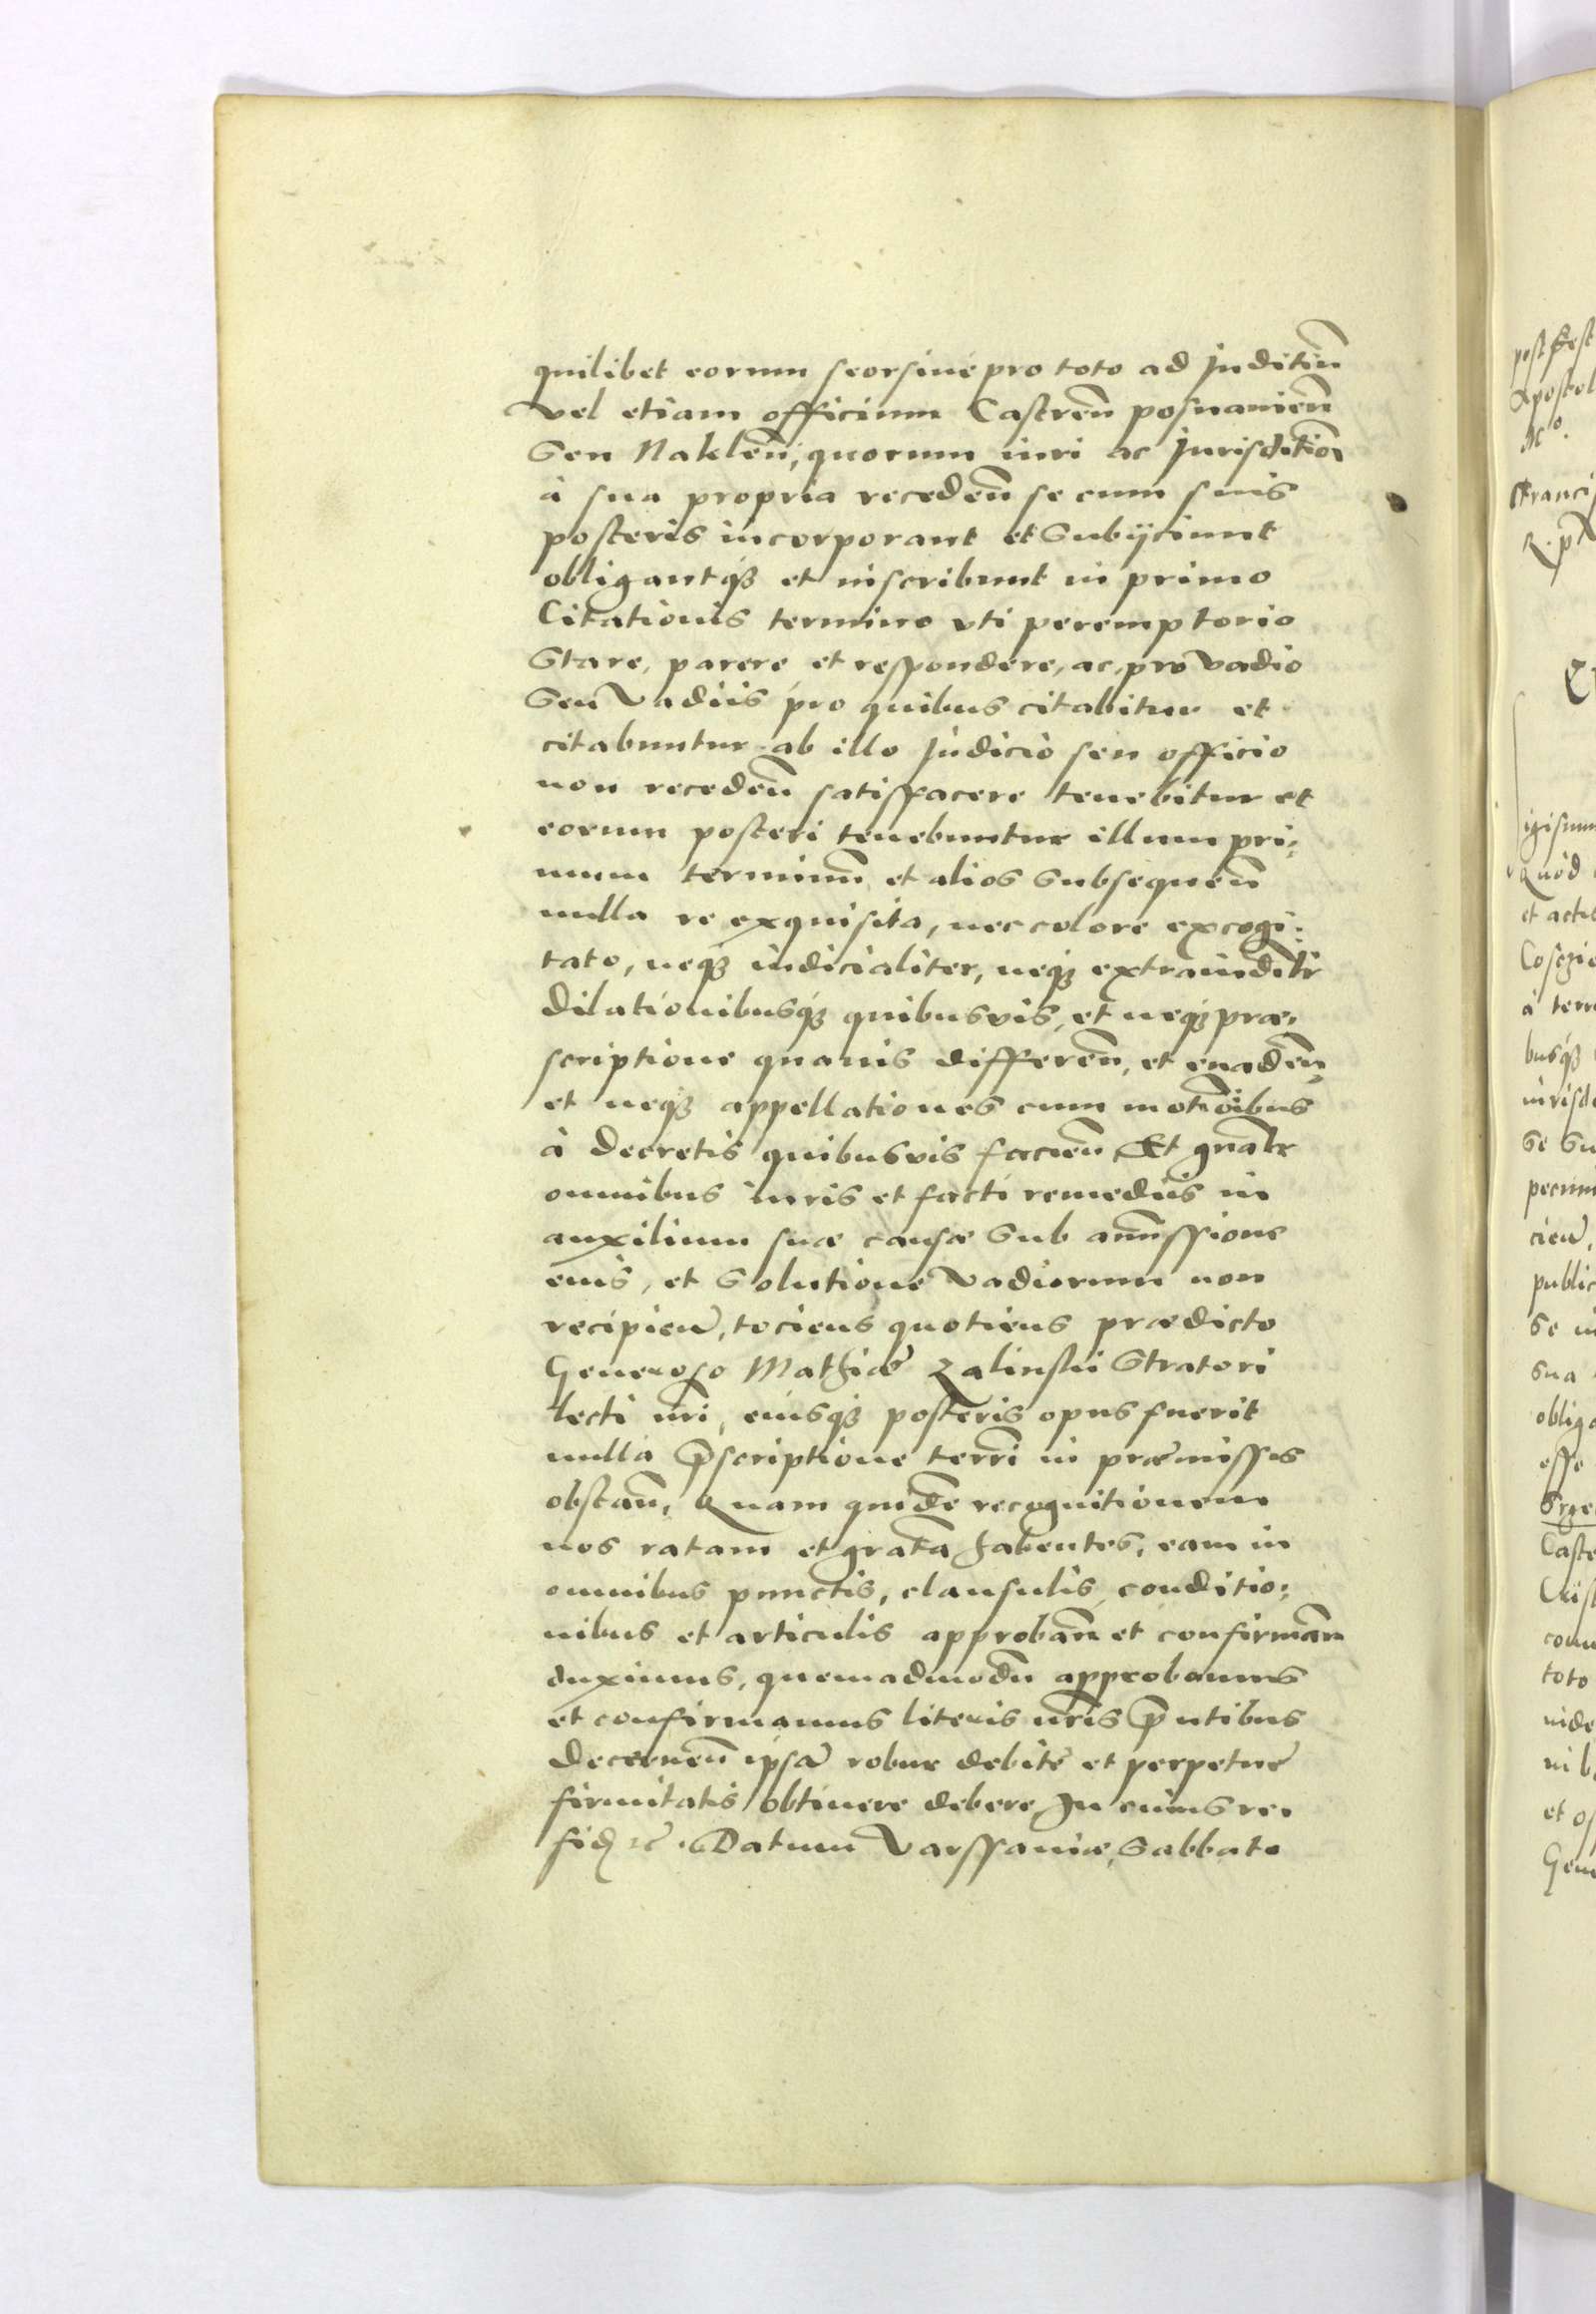 quilibet eorum seorsiue pro toto ad Juditiu̅
vel etiam officium Castren̅ posnanien̅
Seu Naklen̅, quorum iuri ac Jurisditio̅i
à sua propria receden̅ se cum suis
posteris incorporant et Subijciunt
obligantq3 et inscribunt in primo
Citationis termino vti peremptorio
Stare, parere, et respondere, ac, pro vadio
Seu Vadiis pro quibus citabitur et
citabuntur ab illo Judicio seu officio
non receden̅ satisfacere tenebitur et
eorum posteri tenebuntur illum pri:
mum terminu̅ et alios Subsequen̅
nulla re exquisita, nec colore excogi:
tato, neq3 iudicialiter, neq3 extraiudilr
dilationibusq3 quibusvis, et neq3 præ:
scriptione quauis differen̅, et euaden̅,
et neq3 appellationes cum motio̅ibus
à decretis quibusvis facien̅ Et gn̅alr
omnibus iuris et facti remediis in
auxilium suæ causæ Sub amissione
eius, et Solutione Vadiorum non
recipien̅, tociens quotiens prædicto
Generoso Mathiæ Zalinski Stratori
lecti nr̅i, eiusq3 posteris opus fuerit
nulla p̅scriptione terr̅i in præmissis
obstan̅, Quam quide̅ recognitionem
nos ratam et grata̅ habentes, eam in
omnibus punctis, clausulis, conditio:
nibus et articulis approban̅ et confirman̅
duximus, quemadmodu̅ approbamus
et confirmamus literis nr̅is p̅ntibus
decernen̅ ipsa̅ robur debitę et perpetuę
firmitatis obtinere debere, In cuius rei
fid̅ ꝛc̅. Datum Varssauiæ, Sabbato
post fest
Apostol
Franci
igismu
Quod
et acti
à terr
busq3
Se Su
pecun
publi
Se in
sua
oblig
esse
Caste
toto
et of
Gene